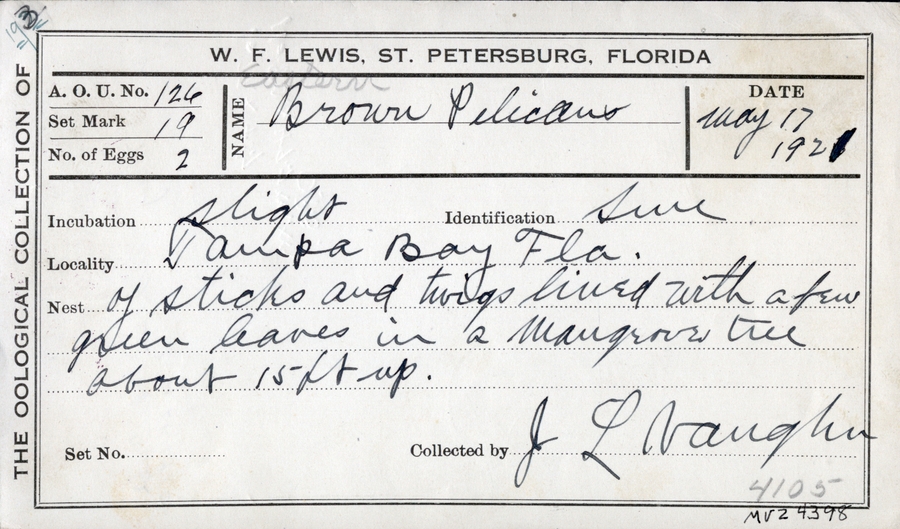 THE OOLOGICAL COLLECTION OF
W. F. LEWIS, ST. PETERSBURG, FLORIDA
A. O. U. No. 126
Set Mark 19
No. of Eggs 2
NAME Eastern Brown Pelicans
DATE
May 17
1921
Incubation slight Identification Sure
Locality Tampa Bay Fla.
Nest of sticks and twigs lined with a few
green leaves in a Mangrove tree
about 15 ft up.
Set No. Collected by J L Vaughn
4105
MVZ 4398